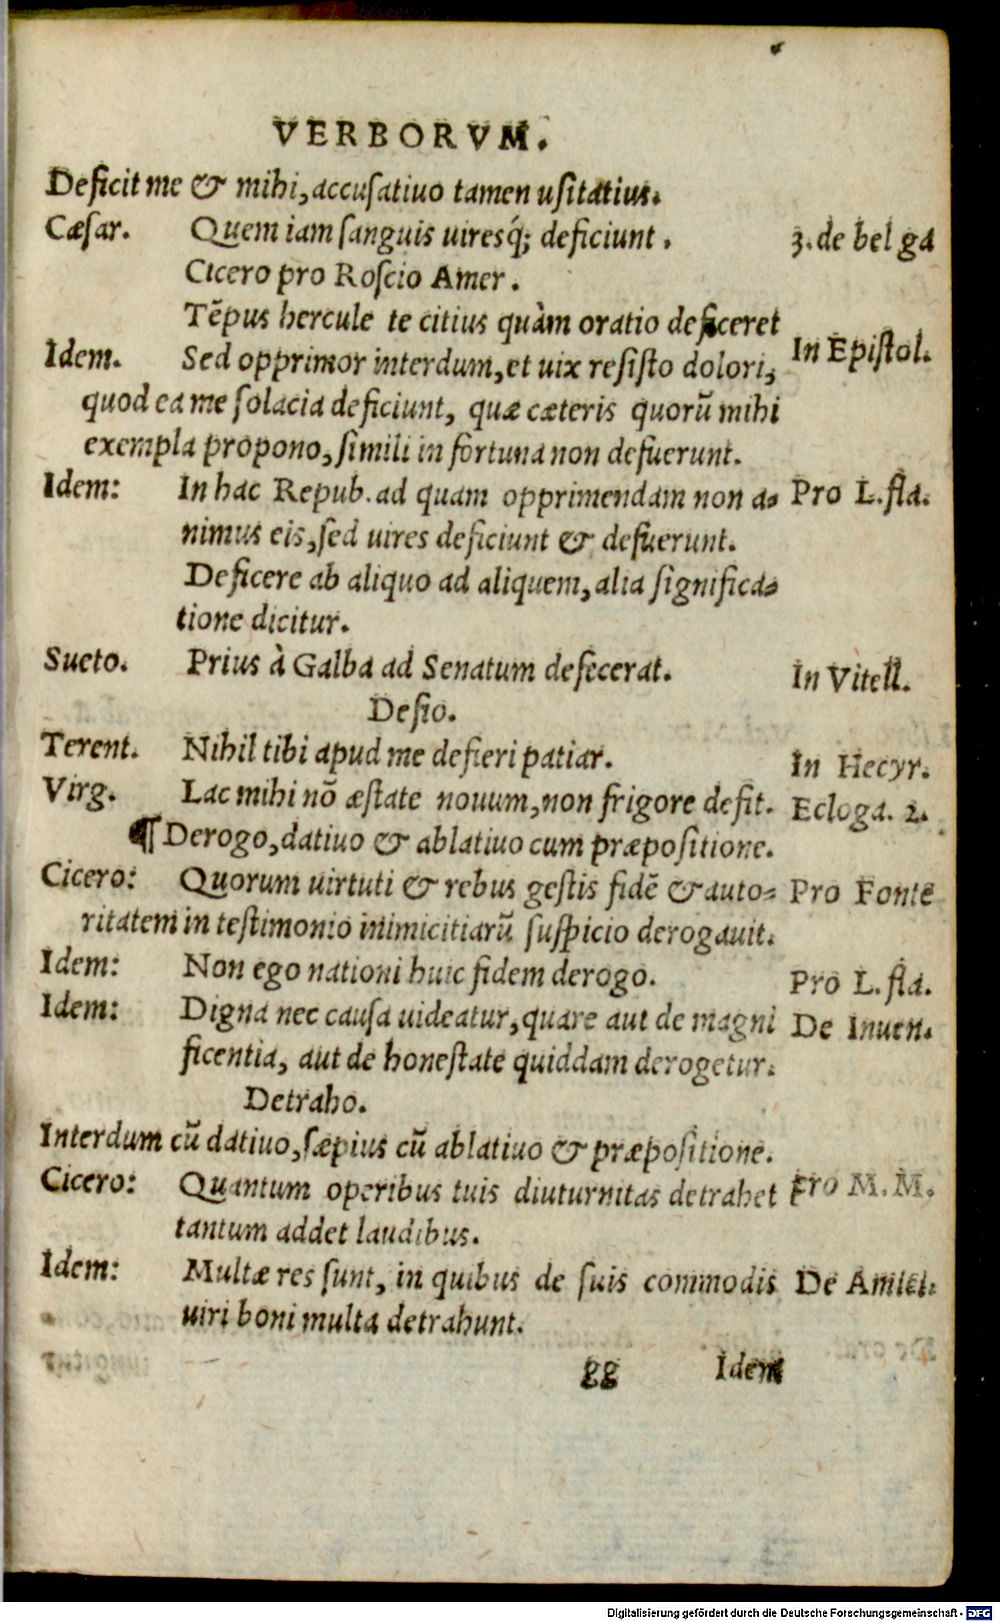 VERBORVM.
Deficit me & mihi, accusatiuo tamen usitatius.
Cæsar. Quem iam sanguis uiresq́; deficiunt. 3. de bel ga
Cicero pro Roscio Amer.
Tẽpus hercule te citius quàm oratio deficeret
Idem. Sed opprimor interdum, et uix resisto dolori, In Epistol.
quod ea me solacia deficiunt, quæ cæteris quorũ mihi
exempla propono, simili in fortuna non defuerunt.
Idem: In hac Repub. ad quam opprimendam non a= Pro L. fla.
nimus eis, sed uires deficiunt & defuerunt.
Deficere ab aliquo ad aliquem, alia significa=
tione dicitur.
Sueto. Prius à Galba ad Senatum defecerat. In Vitell.
Defio.
Terent. Nihil tibi apud me defieri patiar. In Hecyr.
Virg. Lac mihi nõ æstate nouum, non frigore defit. Ecloga. 2.
¶ Derogo, datiuo & ablatiuo cum præpositione.
Cicero: Quorum uirtuti & rebus gestis fidẽ & auto= Pro Fonte
ritatem in testimonio inimicitiarũ suspicio derogauit.
Idem: Non ego nationi huic fidem derogo. Pro L. fla.
Idem: Digna nec causa uideatur, quare aut de magni De Inuen.
ficentia, aut de honestate quiddam derogetur.
Detraho.
Interdum cũ datiuo, sæpius cũ ablatiuo & præpositione.
Cicero: Quantum operibus tuis diuturnitas detrahet Pro M. M.
tantum addet laudibus.
Idem: Multæ res sunt, in quibus de suis commodis De Amici.
uiri boni multa detrahunt.
gg Idem
Digitalisierung gefördert durch die Deutsche Forschungsgemeinschaft - DFG